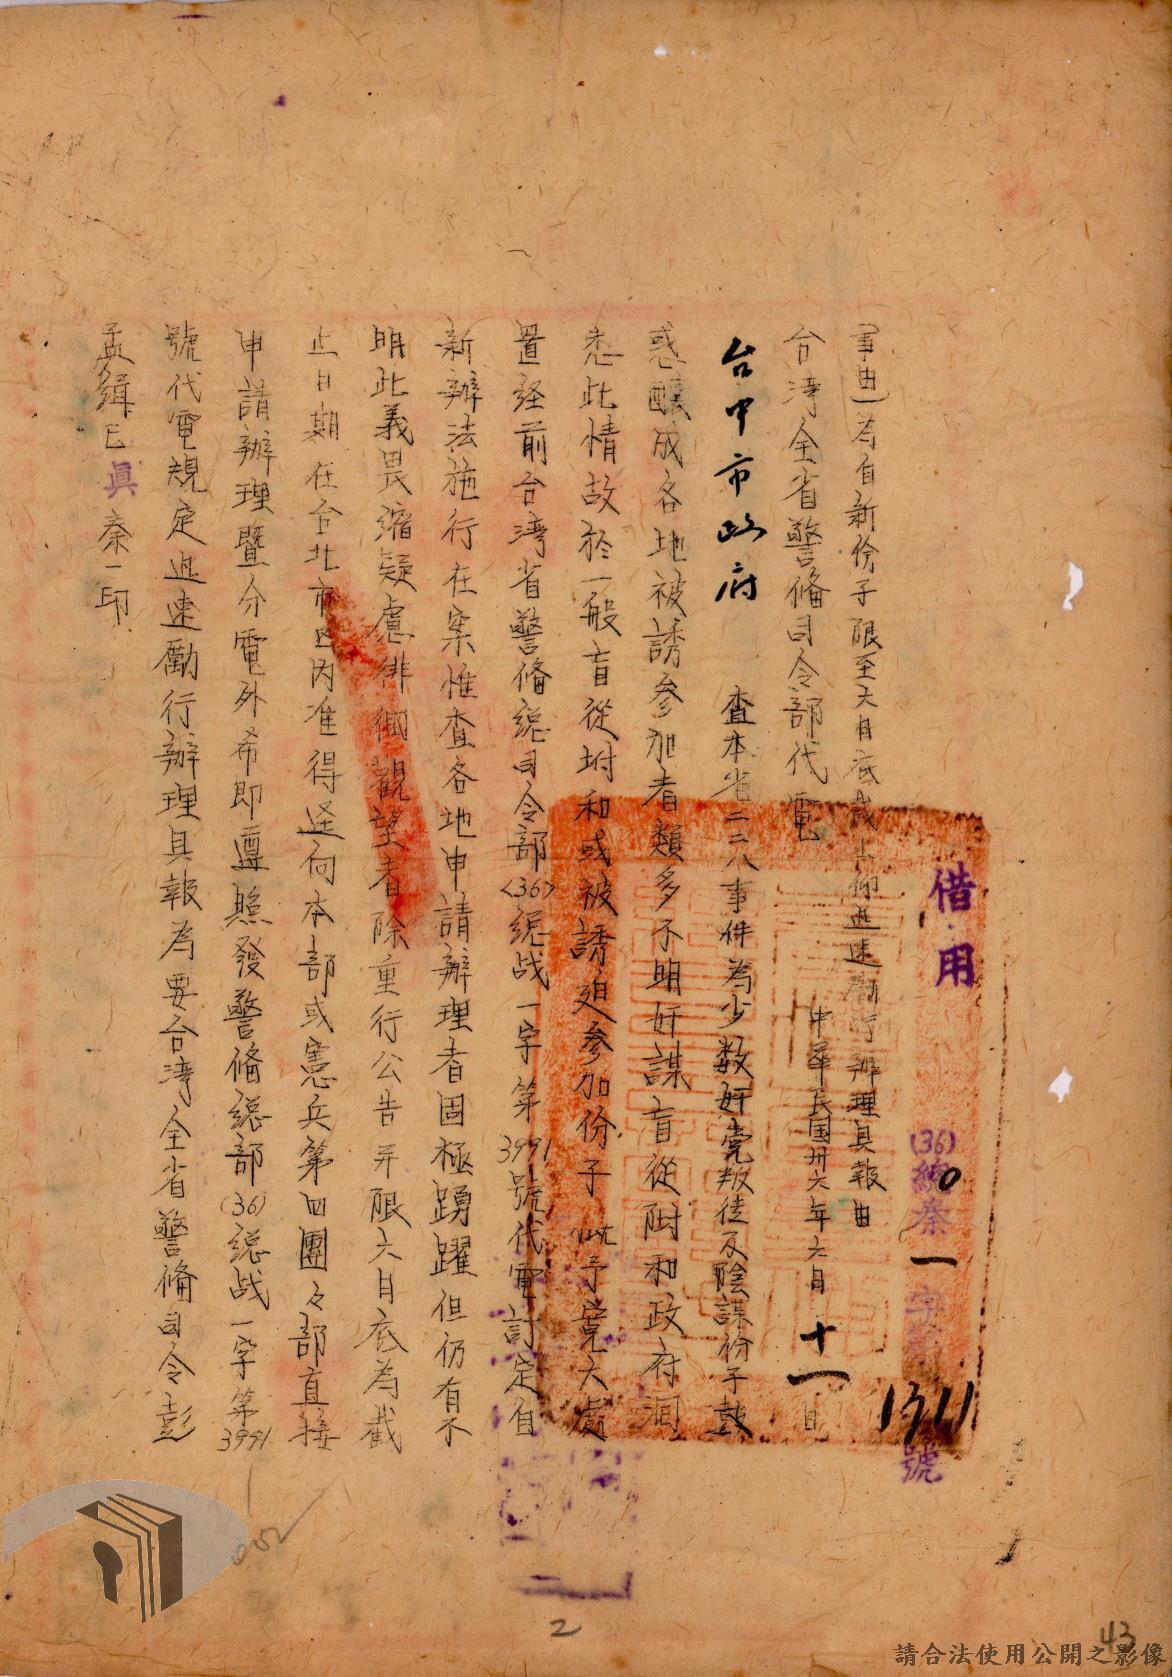 借用
(36)總秦一字第1311號
(事由)為自新份子限至六月底截止仰迅速勵行辦理具報由
台湾全省警俻司令部代電　中華民国卅六年六月十一日
台中市政府　查本省二二八事件為少数奸党叛徒及陰謀份子鼓
惑釀成各地被誘參加者類多不明奸謀盲從附和政府洞
悉此情故於一般盲從坿和或被誘廹參加份子 予寬大處
置经前台湾省警俻総司令部<36>総战一字第3991號代電訂定自
新辦法施行在案惟查各地申請辦理者固極踴躍但仍有不
明此義畏縮疑慮徘徊觀望者除重行公告并限六月底為截
止日期在台北市区内准得逕向本部或憲兵第四團々部直接
申請辦理暨分電外希即遵照發警俻総部(36)総战一字第3991
號代電規定迅速勵行辦理具報為要台湾全省警俻司令彭
孟緝已真秦一印
002
2
43
請合法使用公開之影像